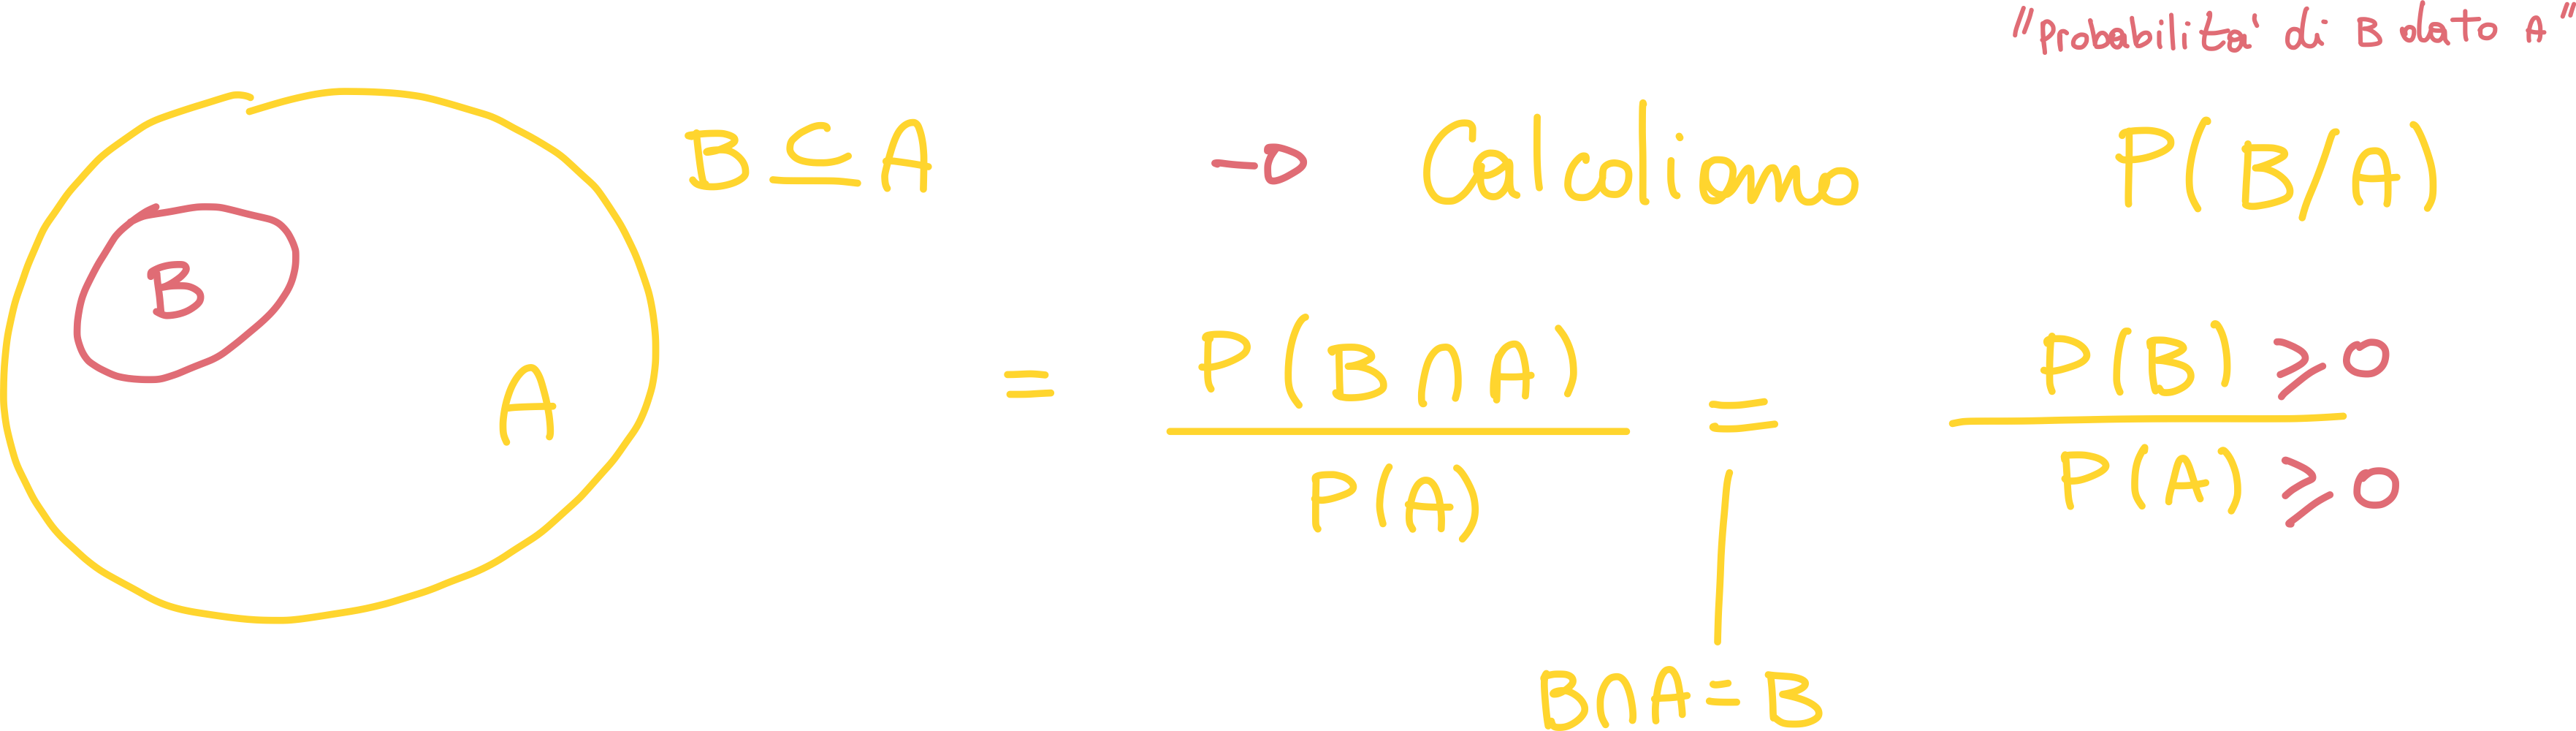 "Probabilita' di B dato A"
B ⊆ A → Calcoliamo P(B/A)
B
A
= P(B∩A) / P(A) = P(B) ≥ 0 / P(A) ≥ 0
B∩A = B